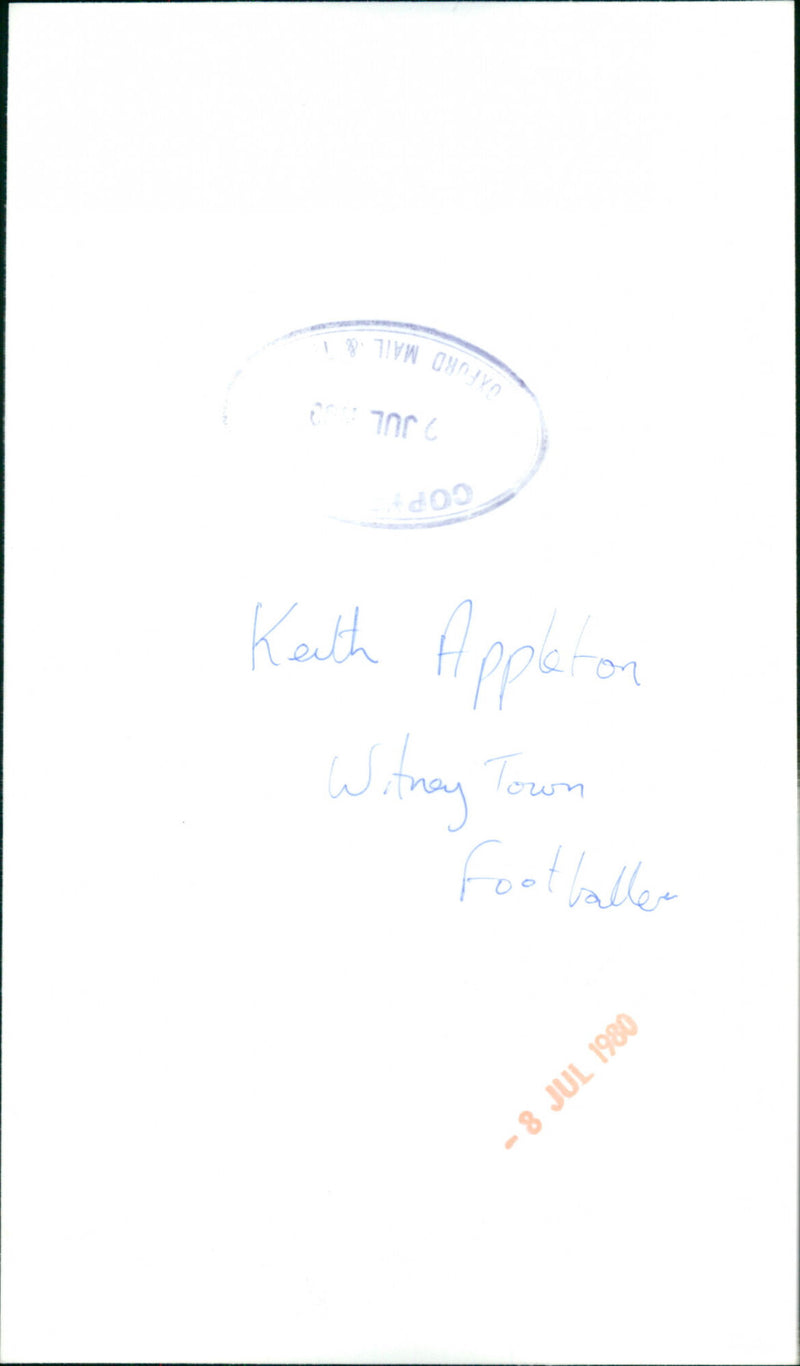 OXFORD MAIL & T
7 JUL 1980
COPY
Keith Appleton
Witney Town
Footballer
- 8 JUL 1980